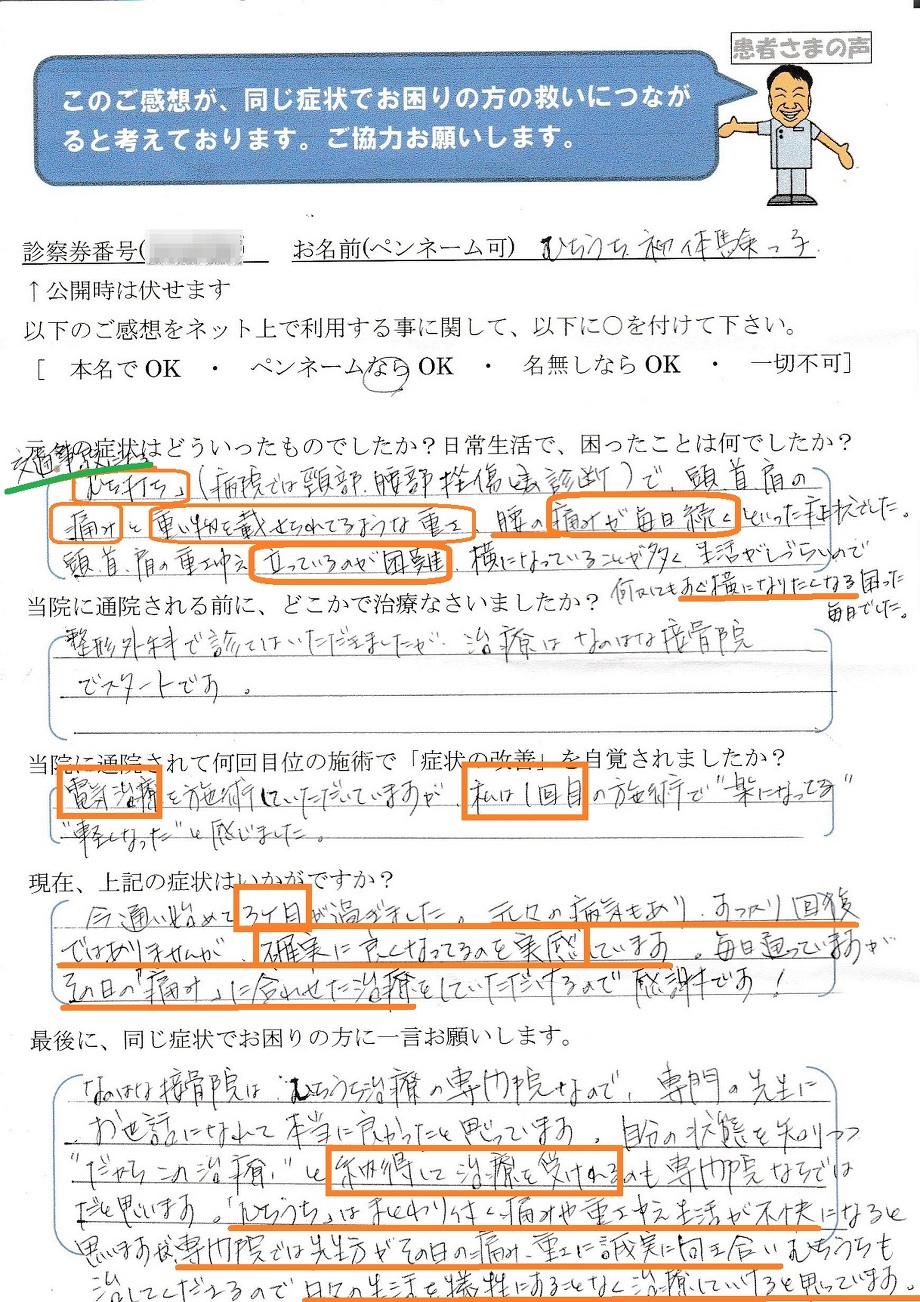 患者さまの声
このご感想が、同じ症状でお困りの方の救いにつなが
ると考えております。ご協力お願いします。
診察券番号( お名前(ペンネーム可) むちうち初体験っ子
↑公開時は伏せます
以下のご感想をネット上で利用する事に関して、以下に〇を付けて下さい。
[ 本名でOK ・ ペンネームならOK ・ 名無しならOK ・ 一切不可]
の症状はどういったものでしたか?日常生活で、困ったことは何でしたか?
交通事故による
「むち打ち」(病院では頸部、腰部挫傷と診断)で、頭、首、肩の
痛みと重い物を載せられてるような重さ、腰の痛みが毎日続くといった症状でした。
頭、首、肩の重さゆえ立っているのが困難、横になっていることが多く生活がしづらいので
何をするにもすぐ横になりたくなる困った
毎日でした。
当院に通院される前に、どこかで治療なさいましたか?
整形外科で診てはいただきましたが、治療はなのはな接骨院
でスタートです。
当院に通院されて何回目位の施術で「症状の改善」を自覚されましたか?
電気治療を施術していただいていますが、私は1回目の施術で"楽になってる"
"軽くなった"と感じました。
現在、上記の症状はいかがですか?
今通い始めて3ヶ月が過ぎました。元々の病気もあり、すっかり回復
ではありませんが、確実に良くなってるのを実感しています。毎日通っていますが
その日の「痛み」に合わせた治療をしていただけるので感謝です!
最後に、同じ症状でお困りの方に一言お願いします。
なのはな接骨院は、むちうち治療の専門院なので、専門の先生に
お世話になれて本当に良かったと思っています。自分の状態を知りつつ
"だからこの治療!"と納得して治療を受けれるのも専門院ならでは
だと思います。「むちうち」はまとわり付く痛みや重さゆえ生活が不快になると
思いますが、専門院では先生方がその日の痛み、重さに誠実に向き合いむちうちも
治してくださるので日々の生活を犠牲にすることなく治療していけると思っています。